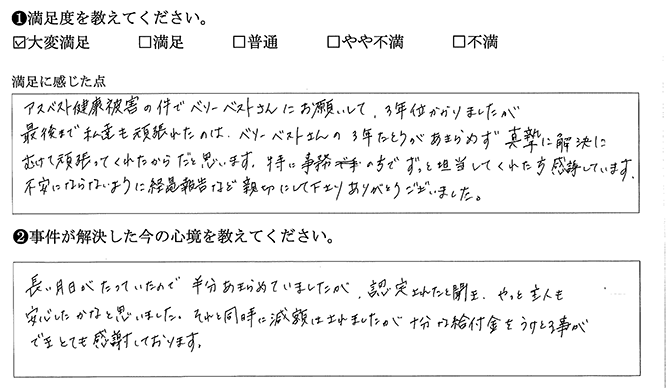 ❶満足度を教えてください。
☑大変満足 □満足 □普通 □やや不満 □不満
満足に感じた点
アスベスト健康被害の件でベリーベストさんにお願いして、3年位かかりましたが
最後まで私達も頑張れたのは、ベリーベストさんの3年たとうがあきらめず真摯に解決に
むけて頑張ってくれたからだと思います。特に事務の方でずっと担当してくれた方感謝しています。
不安にならないように経過報告など親切にして下さりありがとうございました。
❷事件が解決した今の心境を教えてください。
長い月日がたっていたので半分あきらめていましたが、認定されたと聞き、やっと主人も
安心したかなと思いました。それと同時に減額はされましたが十分な給付金をうけとる事が
できとても感謝しております。